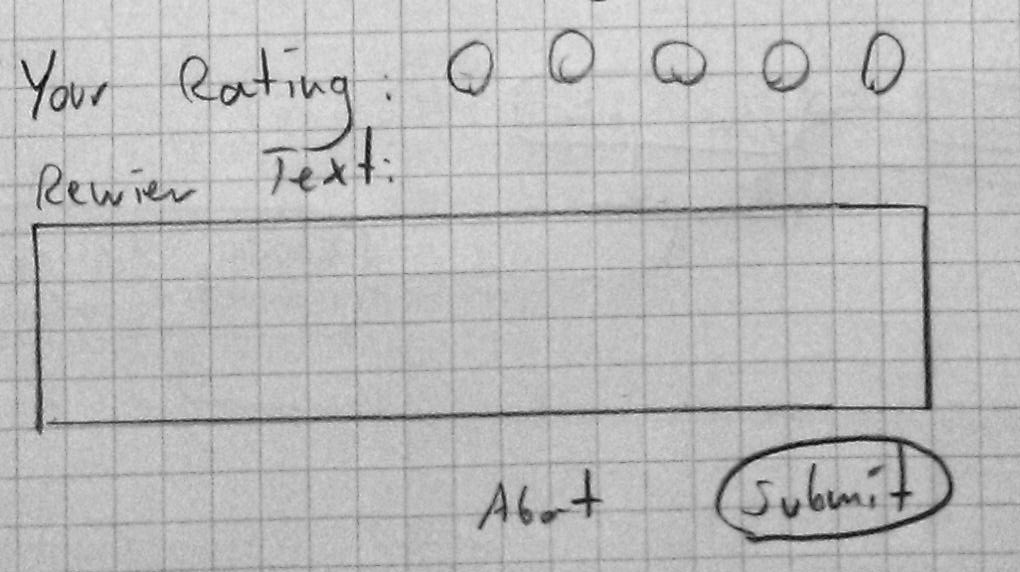 Your Rating:
Review Text:
Abort Submit